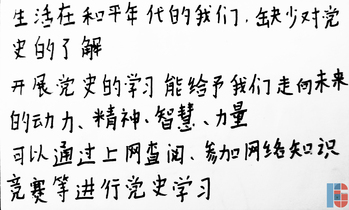 生活在和平年代的我们，缺少对党
史的了解
开展党史的学习能给予我们走向未来
的动力、精神、智慧、力量
可以通过上网查阅、参加网络知识
竞赛等进行党史学习